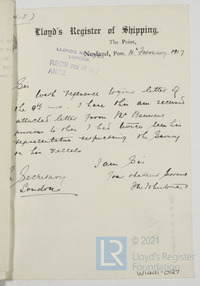 Lloyd's Register of Shipping.
The Point,
Neyland, Pem. 11th February 1917
LLOYD'S REGISTER
LONDON
RECD FEB 1917
Sir
With reference to your letter
of the 9th inst. I have this am received
attached letter from Mr
previous to this I had twice seen his
representative respecting the Survey
on his Vessels
I am Sir
Your obedient Servant
Secretary
London
© 2021
Lloyd's Register
Foundation
W1441-0127